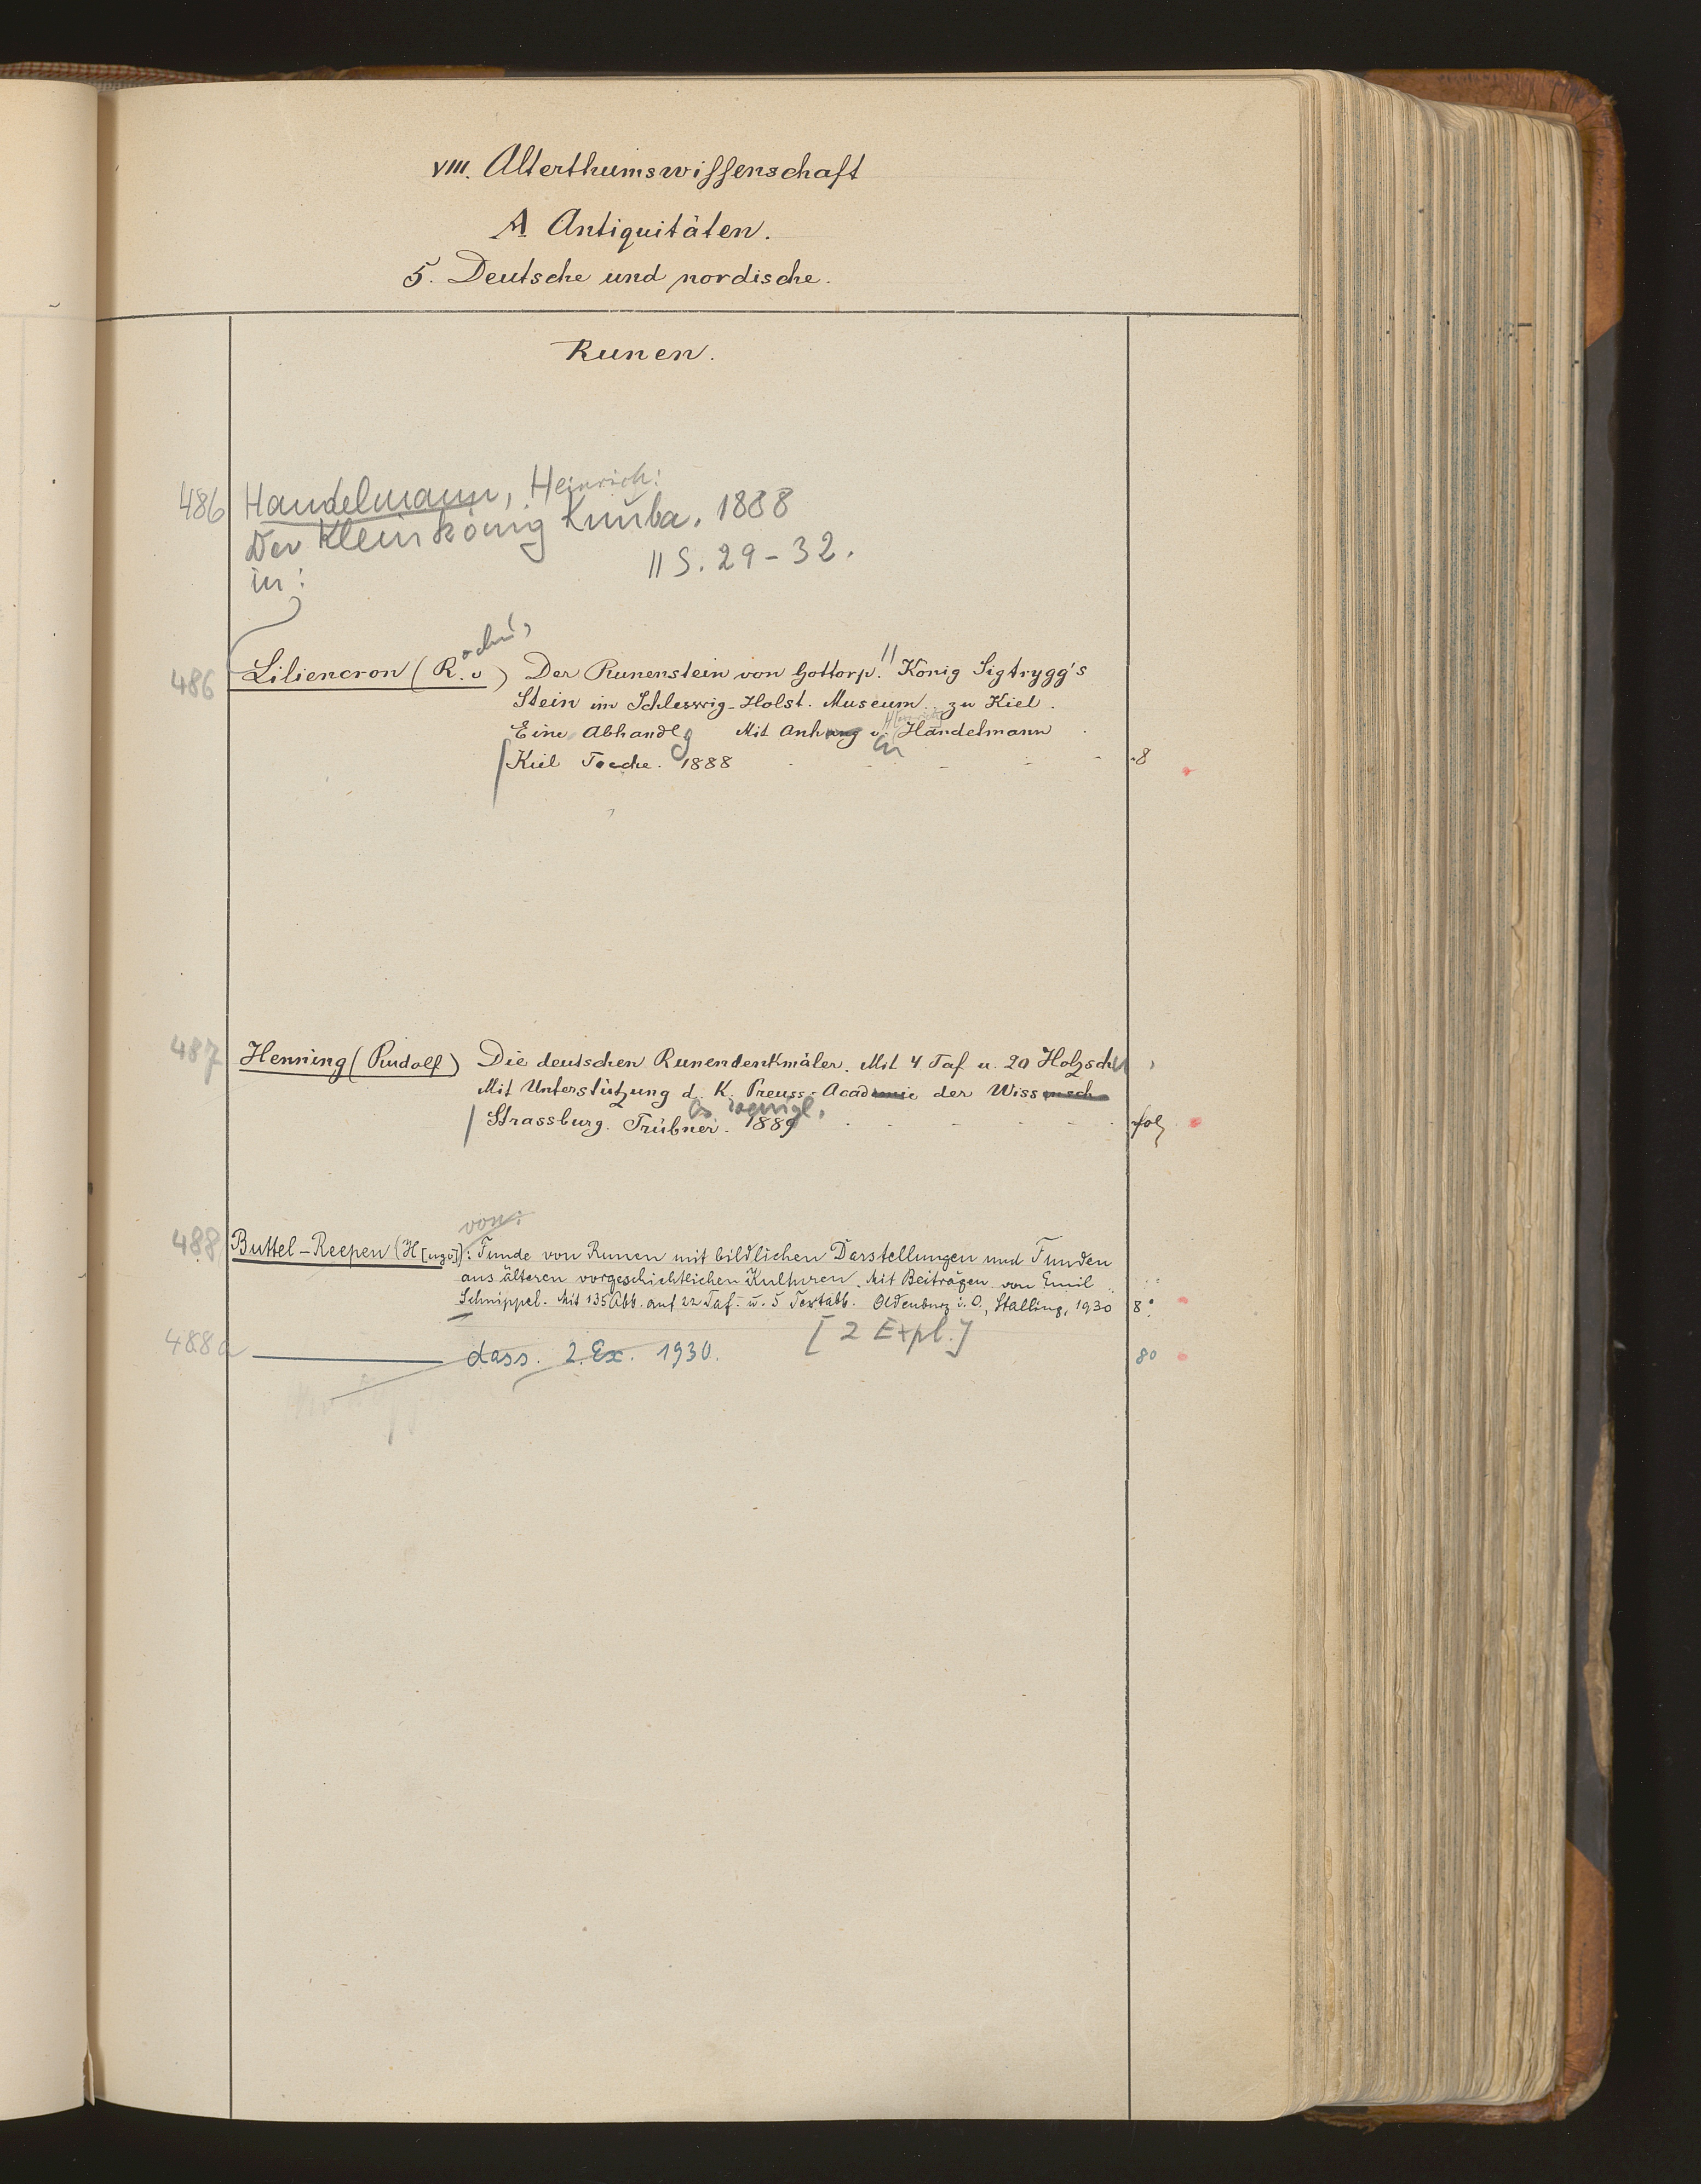 VIII. Alterthumswissenschaft
A Antiquitäten.
5. Deutsche und nordische.
Runen.
486 Handelmann, Heinrich:
Der Kleinkönig Knuba. 1888
in: || S. 29-32.
486 Liliencron (R. v) Der Runenstein von Gottorp. || König Sigtrygg's
Stein im Schleswig-Holst. Museum zu Kiel.
Eine Abhandlg Mit Anhang v. H[einrich] Handelmann
Kiel Toeche. 1888 8
487 Henning (Rudolf) Die deutschen Runendenkmäler. Mit 4 Taf u. 20 Holzschn
Mit Unterstützung d. K. Preuss. Academie der Wissensch
Strassburg. Trübner. 1889 fol
von:
488 Buttel-Reepen (H[ugo]): Funde von Runen mit bildlichen Darstellungen und Funden
aus älteren vorgeschichtlichen Kulturen. Mit Beiträgen von Emil
Schnippel. Mit 135 Abb. auf 22 Taf. u. 5 Textabb. Oldenburg i. O., Stalling, 1930 8°
[2 Expl.]
488a dass. 2. Ex. 1930. 80